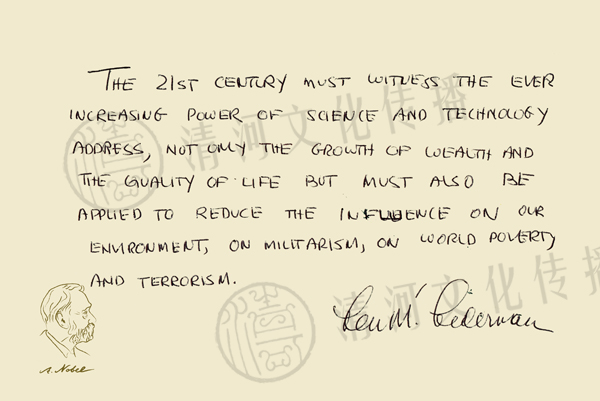 THE 21ST CENTURY MUST WITNESS THE EVER
INCREASING POWER OF SCIENCE AND TECHNOLOGY
ADDRESS, NOT ONLY THE GROWTH OF WEALTH AND
THE QUALITY OF LIFE BUT MUST ALSO BE
APPLIED TO REDUCE THE INFLUENCE ON OUR
ENVIRONMENT, ON MILITARISM, ON WORLD POVERTY,
AND TERRORISM.
Leon M. Lederman
A. Nobel
清河文化传播
清河文化传播